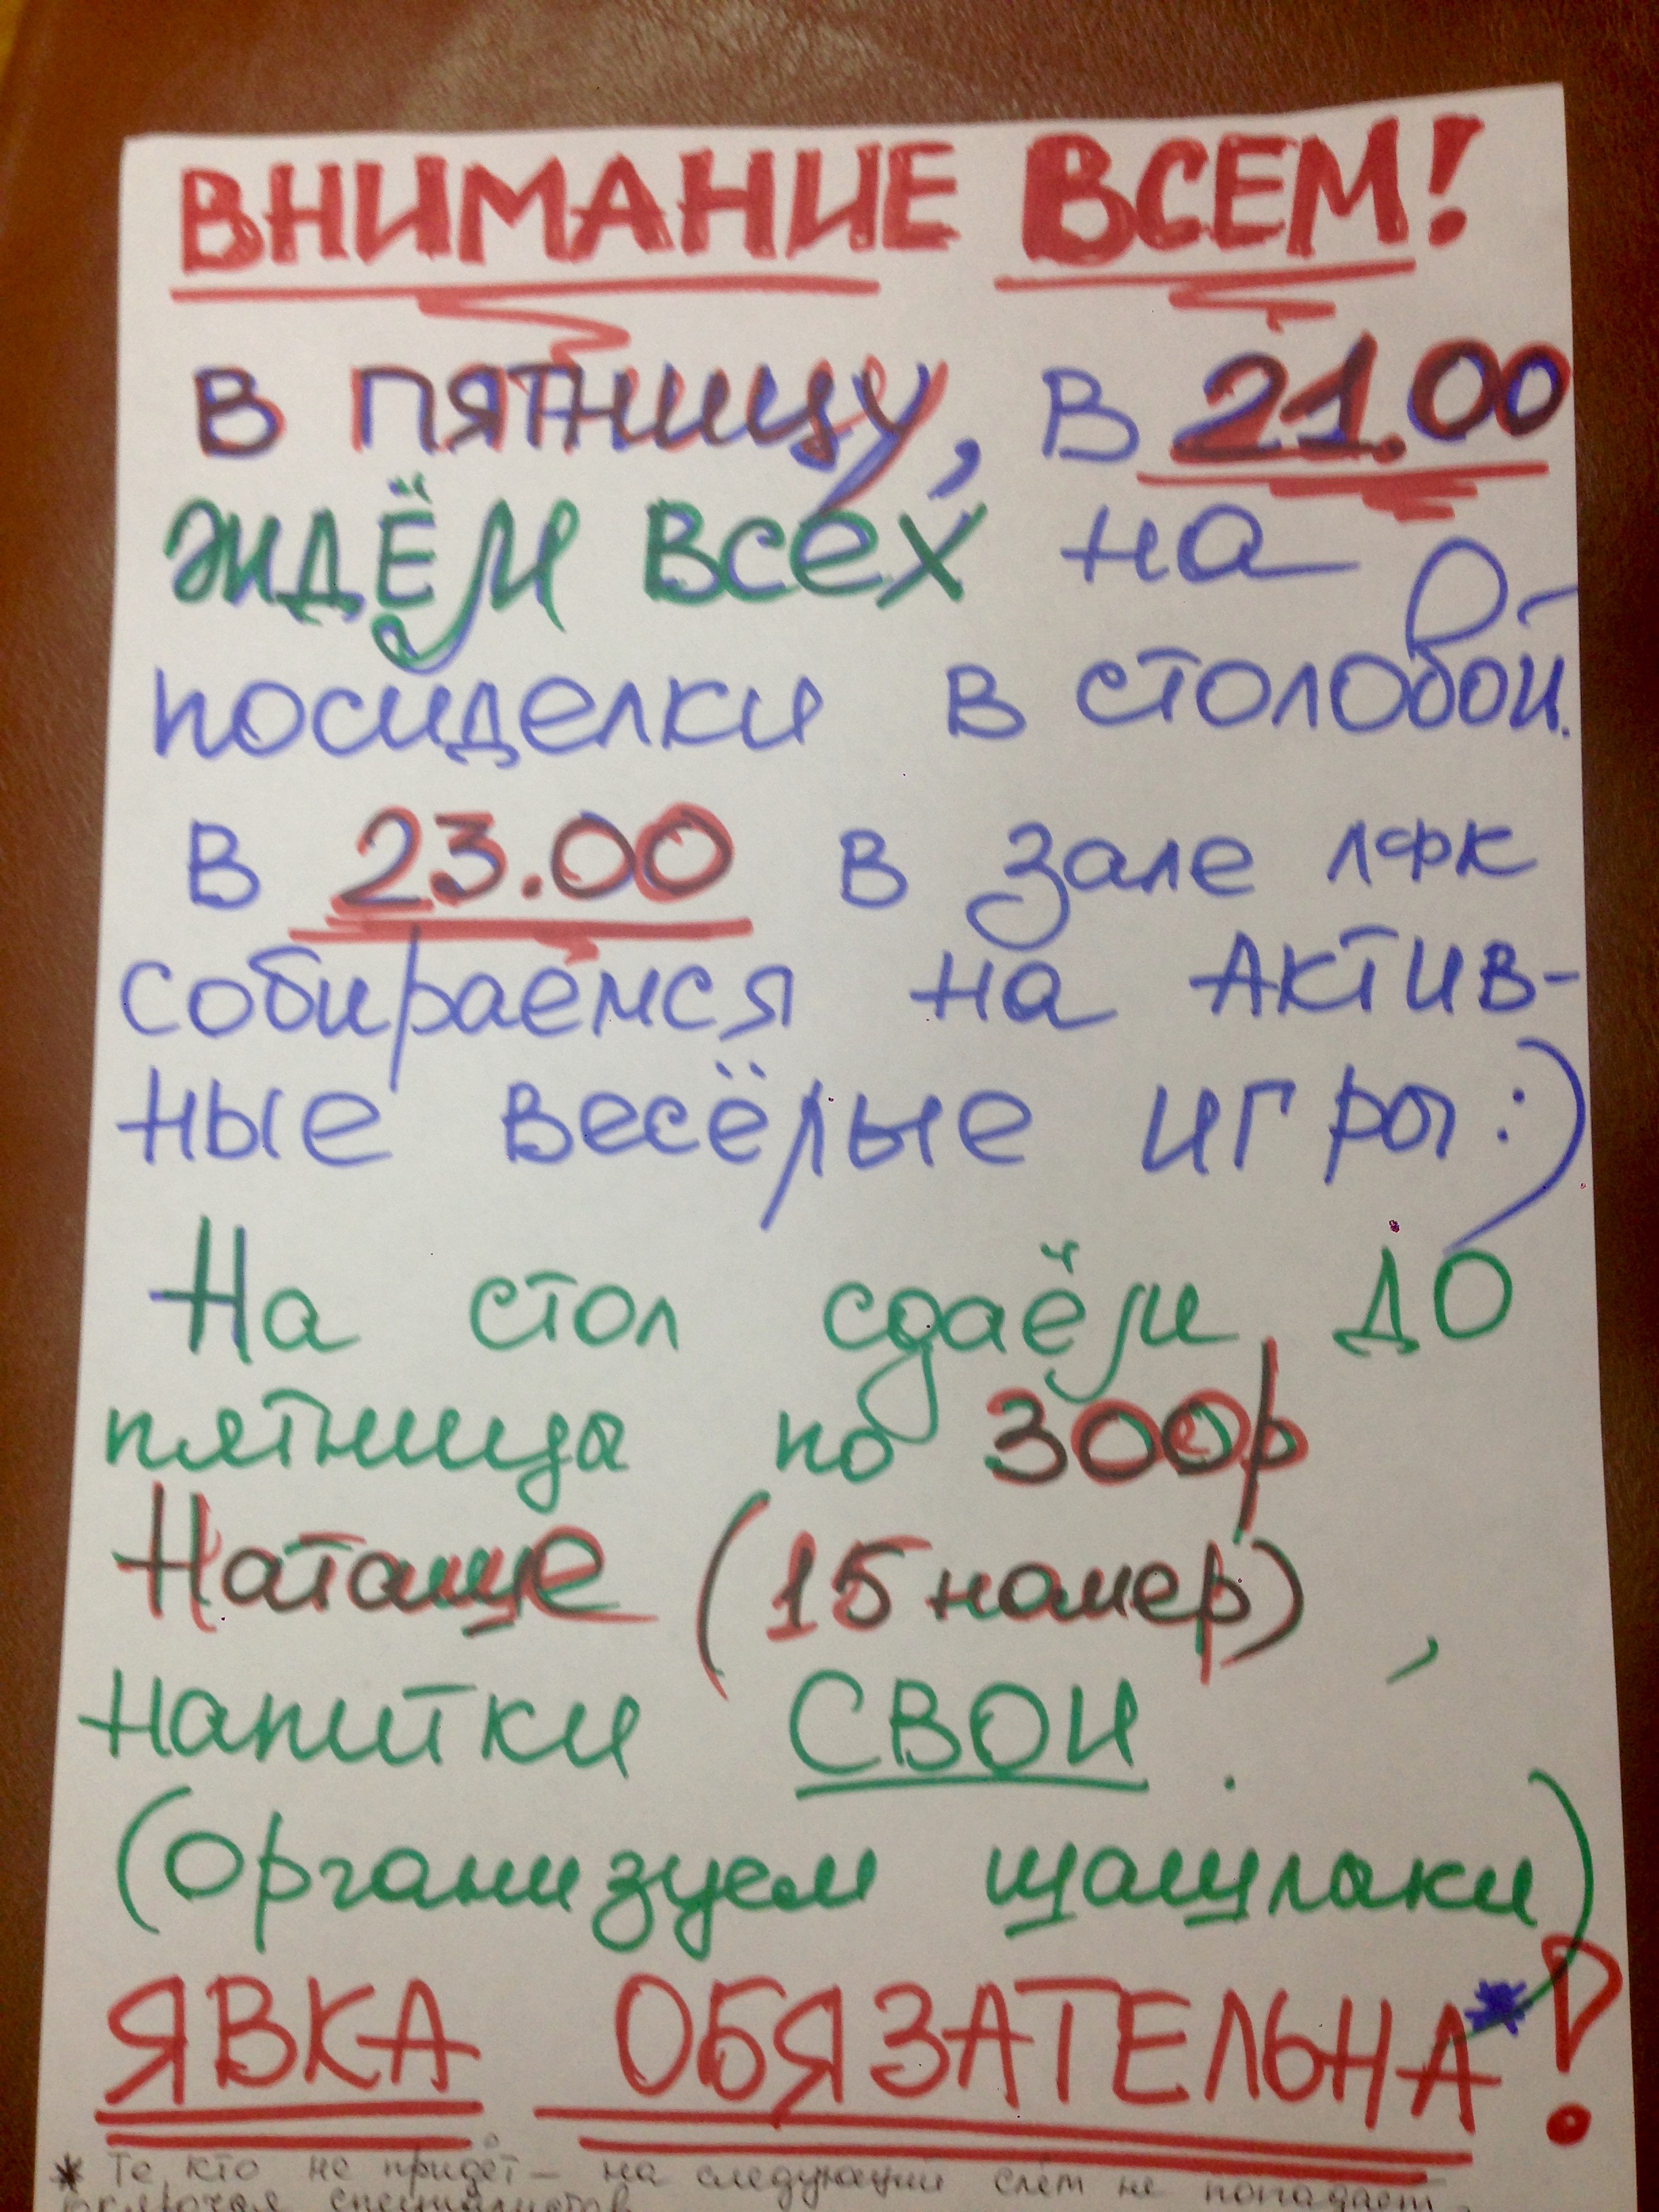 ВНИМАНИЕ ВСЕМ!
В ПЯТНИЦУ, В 21.00
ЖДЁМ ВСЕХ на
посиделки в столовой.
В 23.00 в зале лфк
собираемся на АКТИВ-
ные весёлые игры :)
На стол сдаём ДО
пятницы по 300р
Наташе (15 номер),
напитки СВОИ.
(Организуем шашлыки)
ЯВКА ОБЯЗАТЕЛЬНА*!
* Те, кто не придёт — на следующий слёт не попадает,
включая специалистов